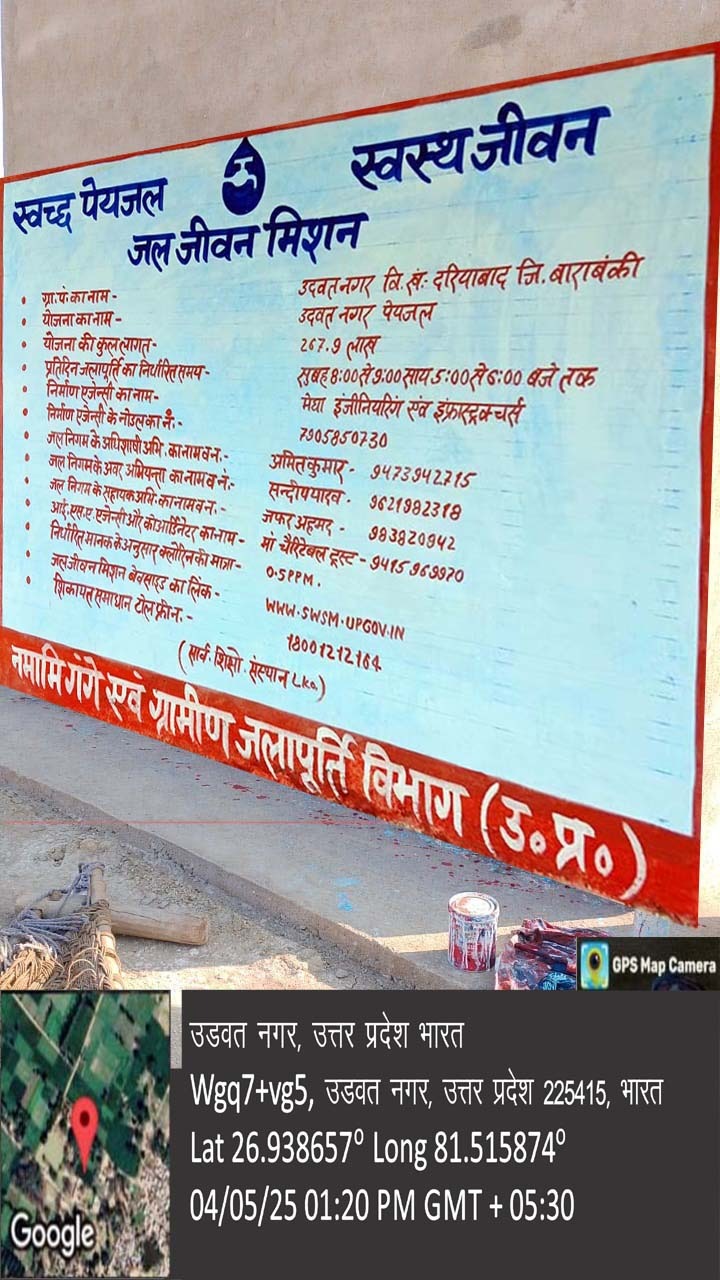 स्वच्छ पेयजल स्वस्थ जीवन
जल जीवन मिशन
• ग्रा.पं. का नाम - उदवत नगर वि.खं:- दरियाबाद जि. बाराबंकी
• योजना का नाम - उदवत नगर पेयजल
• योजना की कुल लागत - 267.9 लाख
• प्रतिदिन जलापूर्ति का निर्धारित समय - सुबह 8:00 से 9:00 साय 5:00 से 6:00 बजे तक
• निर्माण एजेन्सी का नाम - मेघा इंजीनियरिंग एंव इंफ्रास्ट्रक्चर्स
• निर्माण एजेन्सी के नोडल का नं:- 7905850730
• जल निगम के अधिशाषी अभि. का नाम व न.- अमित कुमार - 9473942715
• जल निगम के अवर अभियन्ता का नाम व नं.- सन्दीप यादव - 9621982318
• जल निगम के सहायक अभि. का नाम व न.- जफर अहमद - 983820942
• आई.एस.ए. एजेन्सी और कोआर्डिनेटर का नाम - मां चैरिटेबल ट्रस्ट - 9415969970
• निर्धारित मानक के अनुसार क्लोरिन की मात्रा - 0.5 PPM.
• जल जीवन मिशन बेवसाइड का लिंक - WWW.SWSM.UPGOV.IN
• शिकायत समाधान टोल फ्री न.- 18001212164
(सार्व. शिक्षो. संस्थान LKO)
नमामि गंगे एवं ग्रामीण जलापूर्ति विभाग (उ॰ प्र॰)
GPS Map Camera
उडवत नगर, उत्तर प्रदेश भारत
Wgq7+vg5, उडवत नगर, उत्तर प्रदेश 225415, भारत
Lat 26.938657° Long 81.515874°
04/05/25 01:20 PM GMT + 05:30
Google